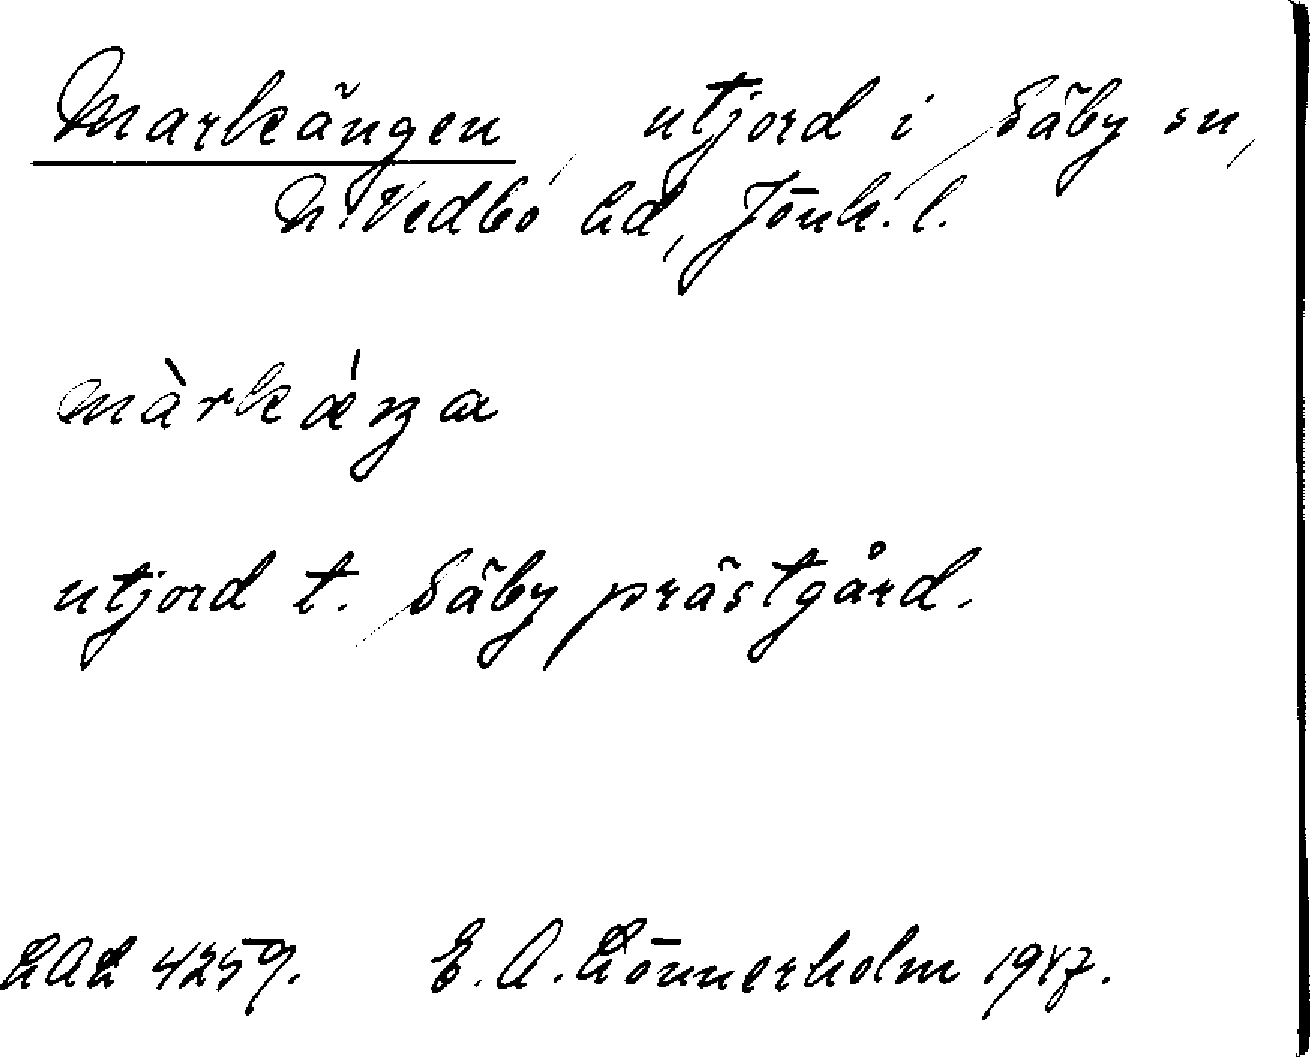 Markängen, utjord i Säby sn,
N. Vedbo hd, Jönk. l.
màrkǽŋa
utjord t. Säby prästgård.
LAL 4259. E. A. Lönnerholm 1947.